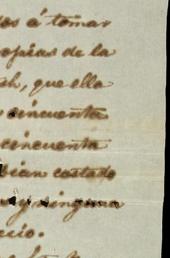 os á tomar
opias de la
h, que ella
cincuenta
cincuenta
bian costado
y ninguna
cio.